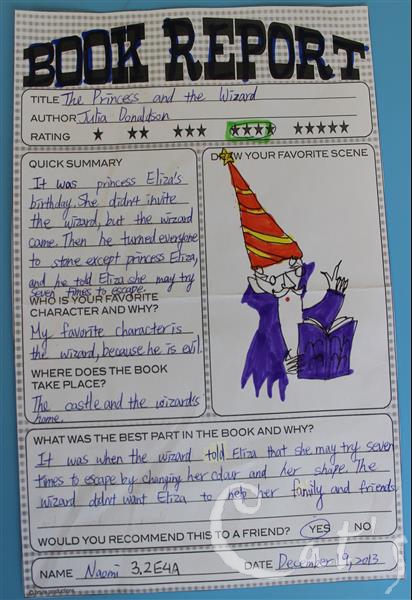 BOOK REPORT
TITLE The Princess and the Wizard
AUTHOR Julia Donaldson
RATING ★ ★★ ★★★ ★★★★ ★★★★★
QUICK SUMMARY
It was princess Eliza's
birthday. She didn't invite
the wizard, but the wizard
came. Then he turned everyone
to stone except princess Eliza,
and he told Eliza she may try
seven times to escape.
WHO IS YOUR FAVORITE
CHARACTER AND WHY?
My favorite character is
the wizard, because he is evil.
WHERE DOES THE BOOK
TAKE PLACE?
The castle and the wizard's
home.
DRAW YOUR FAVORITE SCENE
WHAT WAS THE BEST PART IN THE BOOK AND WHY?
It was when the wizard told Eliza that she may try seven
times to escape by changing her colour and her shape. The
wizard didn't want Eliza to help her family and friends.
WOULD YOU RECOMMEND THIS TO A FRIEND? YES NO
NAME Naomi 3.2E4A DATE December 19, 2013